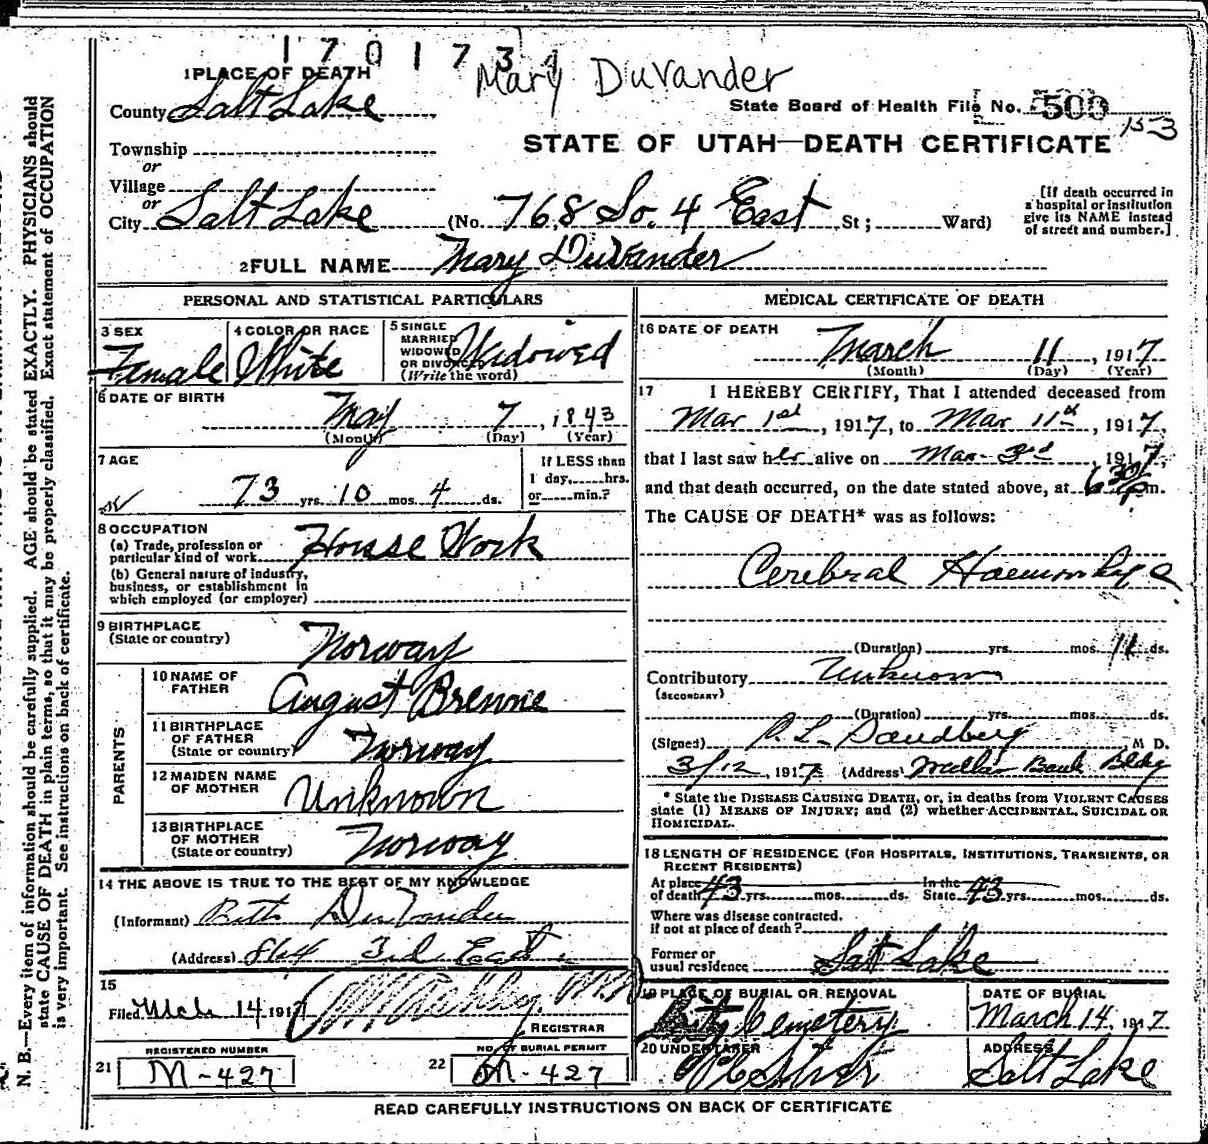 1 7 0 1 7 3
Mary DuVander
1 PLACE OF DEATH
County Salt Lake
State Board of Health File No. 500
153
STATE OF UTAH—DEATH CERTIFICATE
Township
or
Village
or
City Salt Lake (No. 768 So. 4 East St; Ward)
[If death occurred in
a hospital or institution
give its NAME instead
of street and number.]
2 FULL NAME Mary DuVander
PERSONAL AND STATISTICAL PARTICULARS
3 SEX Female
4 COLOR OR RACE White
5 SINGLE
MARRIED
WIDOWED
OR DIVORCED
(Write the word)
Widowed
6 DATE OF BIRTH
May 7, 1843
(Month) (Day) (Year)
7 AGE
73 yrs. 10 mos. 4 ds.
If LESS than
1 day, hrs.
or min.?
8 OCCUPATION
(a) Trade, profession or
particular kind of work House Work
(b) General nature of industry,
business, or establishment in
which employed (or employer)
9 BIRTHPLACE
(State or country) Norway
PARENTS
10 NAME OF
FATHER August Brenne
11 BIRTHPLACE
OF FATHER
(State or country) Norway
12 MAIDEN NAME
OF MOTHER Unknown
13 BIRTHPLACE
OF MOTHER
(State or country) Norway
14 THE ABOVE IS TRUE TO THE BEST OF MY KNOWLEDGE
(Informant) Ruth DuVander
(Address) 864 3rd East
15
Filed Mch 14 1917
REGISTRAR
REGISTERED NUMBER
21 M-427
NO. OF BURIAL PERMIT
22 M-427
MEDICAL CERTIFICATE OF DEATH
16 DATE OF DEATH
March 11, 1917
(Month) (Day) (Year)
17 I HEREBY CERTIFY, That I attended deceased from
Mar 1st, 1917, to Mar 11th, 1917,
that I last saw her alive on Mar 3rd, 1917,
and that death occurred, on the date stated above, at 6 30 p m.
The CAUSE OF DEATH* was as follows:
Cerebral Haemorrhage
(Duration) yrs. mos. 11 ds.
Contributory Unknown
(SECONDARY)
(Duration) yrs. mos. ds.
(Signed) Sandberg M D.
3/12, 1917 (Address) Bank Bldg
* State the DISEASE CAUSING DEATH, or, in deaths from VIOLENT CAUSES
state (1) MEANS OF INJURY; and (2) whether ACCIDENTAL, SUICIDAL OR
HOMICIDAL.
18 LENGTH OF RESIDENCE (FOR HOSPITALS, INSTITUTIONS, TRANSIENTS, OR
RECENT RESIDENTS)
At place of death 43 yrs. mos. ds. In the State 43 yrs. mos. ds.
Where was disease contracted,
if not at place of death?
Former or
usual residence Salt Lake
19 PLACE OF BURIAL OR REMOVAL
City Cemetery
DATE OF BURIAL
March 14, 1917
20 UNDERTAKER
ADDRESS
Salt Lake
READ CAREFULLY INSTRUCTIONS ON BACK OF CERTIFICATE
N. B.—Every item of information should be carefully supplied. AGE should be stated EXACTLY. PHYSICIANS should
state CAUSE OF DEATH in plain terms, so that it may be properly classified. Exact statement of OCCUPATION
is very important. See instructions on back of certificate.